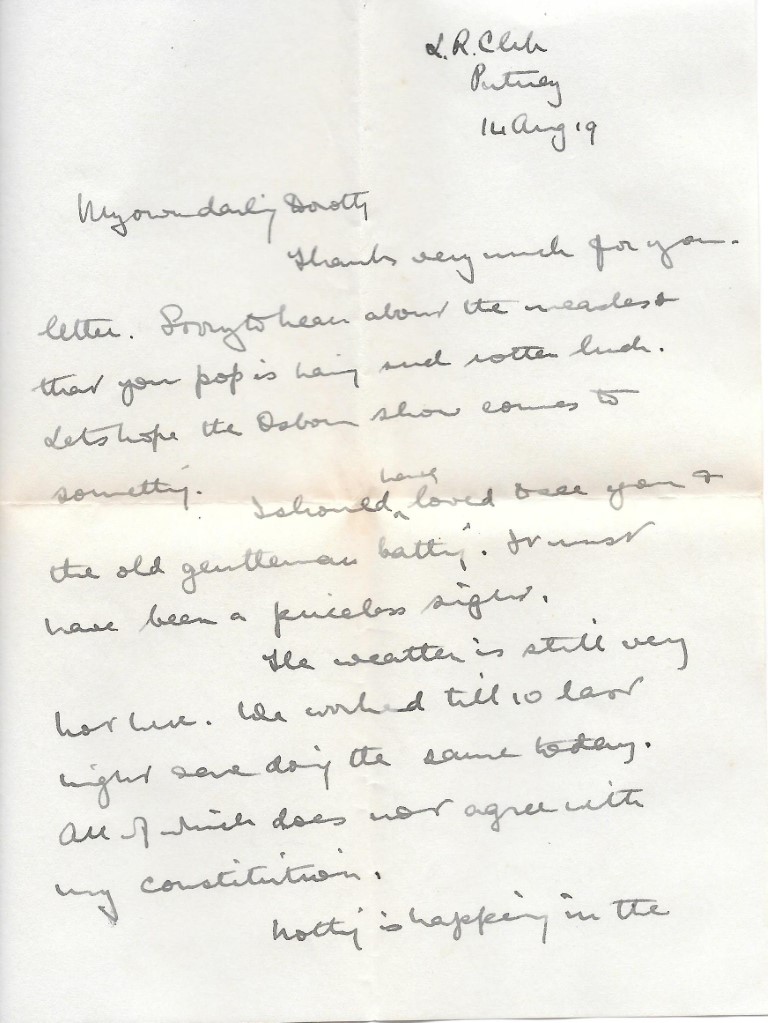 L.R. Club
Putney
14 Aug 19
My own darling Dorothy
Thanks very much for your
letter. Sorry to hear about the measles &
that your pop is having such rotten luck.
Lets hope the Osborn show comes to
something. I should have loved to see you &
the old gentleman bathing. It must
have been a priceless sight.
The weather is still very
hot here. We worked till 10 last
night & are doing the same today.
All of which does not agree with
my constitution.
Nothing is happening in the